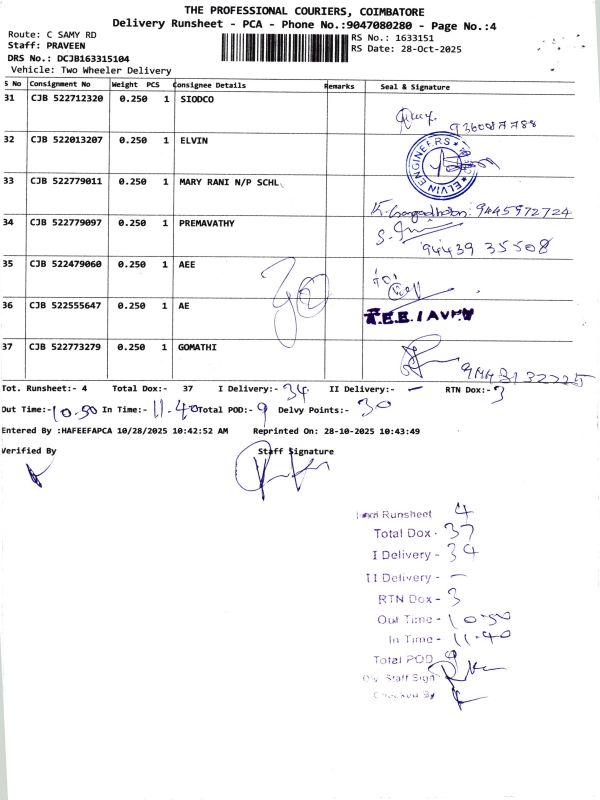 THE PROFESSIONAL COURIERS, COIMBATORE
Delivery Runsheet - PCA - Phone No.:9047080280 - Page No.:4
Route: C SAMY RD
RS No.: 1633151
Staff: PRAVEEN
RS Date: 28-Oct-2025
DRS No.: DCJB163315104
Vehicle: Two Wheeler Delivery
S No Consignment No Weight PCS Consignee Details Remarks Seal & Signature
31 CJB 522712320 0.250 1 SIODCO
32 CJB 522013207 0.250 1 ELVIN
ELVIN ENGINEERS
33 CJB 522779011 0.250 1 MARY RANI N/P SCHL
9445972724
34 CJB 522779097 0.250 1 PREMAVATHY
94439 35508
35 CJB 522479060 0.250 1 AEE
36 CJB 522555647 0.250 1 AE
37 CJB 522773279 0.250 1 GOMATHI
Tot. Runsheet:- 4 Total Dox:- 37 I Delivery:- 34 II Delivery:- — RTN Dox:- 3
Out Time:- 10.50 In Time:- 11.40 Total POD:- 9 Delvy Points:- 30
Entered By :HAFEEFAPCA 10/28/2025 10:42:52 AM Reprinted On: 28-10-2025 10:43:49
Verified By Staff Signature
Runsheet 4
Total Dox - 37
I Delivery - 34
II Delivery - —
RTN Dox - 3
Out Time - 10.50
In Time - 11.40
Total POD 9
Staff Sign
Checked By